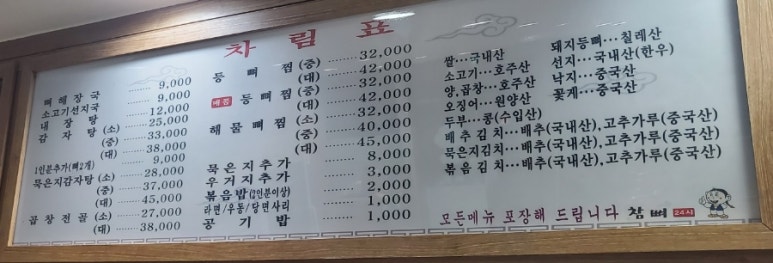 차림표
뼈해장국 ........ 9,000
소고기선지국 ........ 9,000
내장탕 ........ 12,000
감자탕 (소) ........ 25,000
(중) ........ 33,000
(대) ........ 38,000
1인분추가(뼈2개) ........ 9,000
묵은지감자탕 (소) ........ 28,000
(중) ........ 37,000
(대) ........ 45,000
곱창전골 (소) ........ 27,000
(대) ........ 38,000
등뼈찜 (중) ........ 32,000
(대) ........ 42,000
매콤 등뼈찜 (중) ........ 32,000
(대) ........ 42,000
해물뼈찜 (소) ........ 32,000
(중) ........ 40,000
(대) ........ 45,000
묵은지추가 ........ 8,000
우거지추가 ........ 3,000
볶음밥(2인분이상) ........ 2,000
라면/우동/당면사리 ........ 1,000
공기밥 ........ 1,000
쌀…국내산
소고기…호주산
양,곱창…호주산
오징어…원양산
두부…콩(수입산)
돼지등뼈…칠레산
선지…국내산(한우)
낙지…중국산
꽃게…중국산
배추김치…배추(국내산),고추가루(중국산)
묵은지김치…배추(국내산),고추가루(중국산)
볶음김치…배추(국내산),고추가루(중국산)
모든메뉴 포장해 드립니다 참뼈 24시